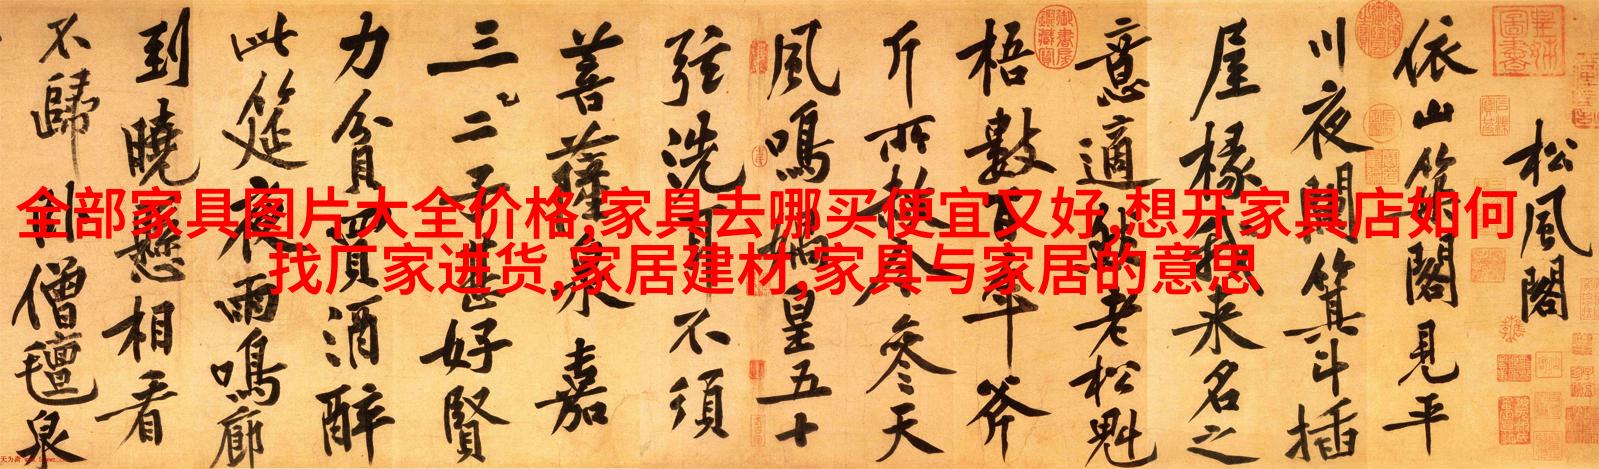 全部家具图片大全价格,家具去哪买便宜又好,想开家具店如何
找厂家进货,家居建材,家具与家居的意思
松風閣
依山築閣見平
川夜闌箕斗插
屋椽我来名之
意適然老松魁
梧數百年斧
斤所赦今參天
風鳴媧皇五十
弦洗耳不須
菩薩泉嘉
三二子甚好賢
力貧買酒醉
此筵夜雨鳴廊
到曉懸相看
不歸臥僧氈泉